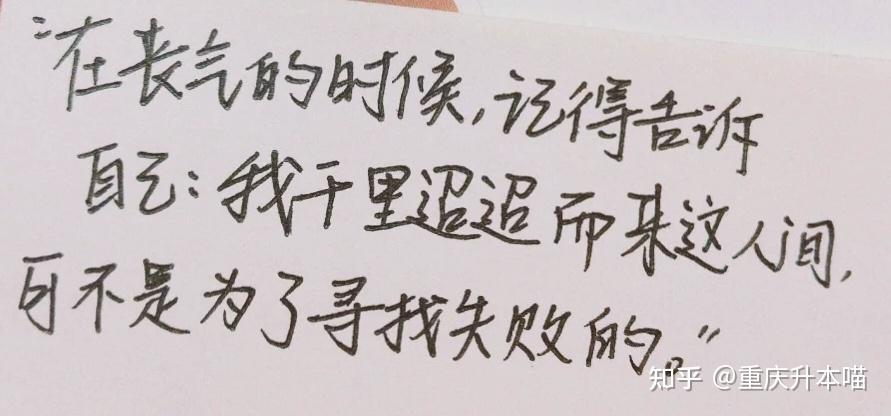 “在丧气的时候,记得告诉
自己:我千里迢迢而来这人间,
可不是为了寻找失败的。”
知乎 @重庆升本喵